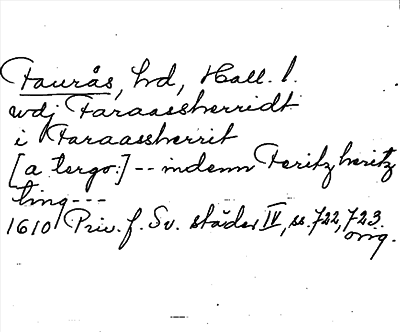 Faurås, hd, Hall. l.
wdj Faraassherridt
i Faraassherrit
[a tergo:] -- indenn Feritzheritz
ting ---
1610 Priv. f. Sv. städer IV, ss. 722, 723.
orig.